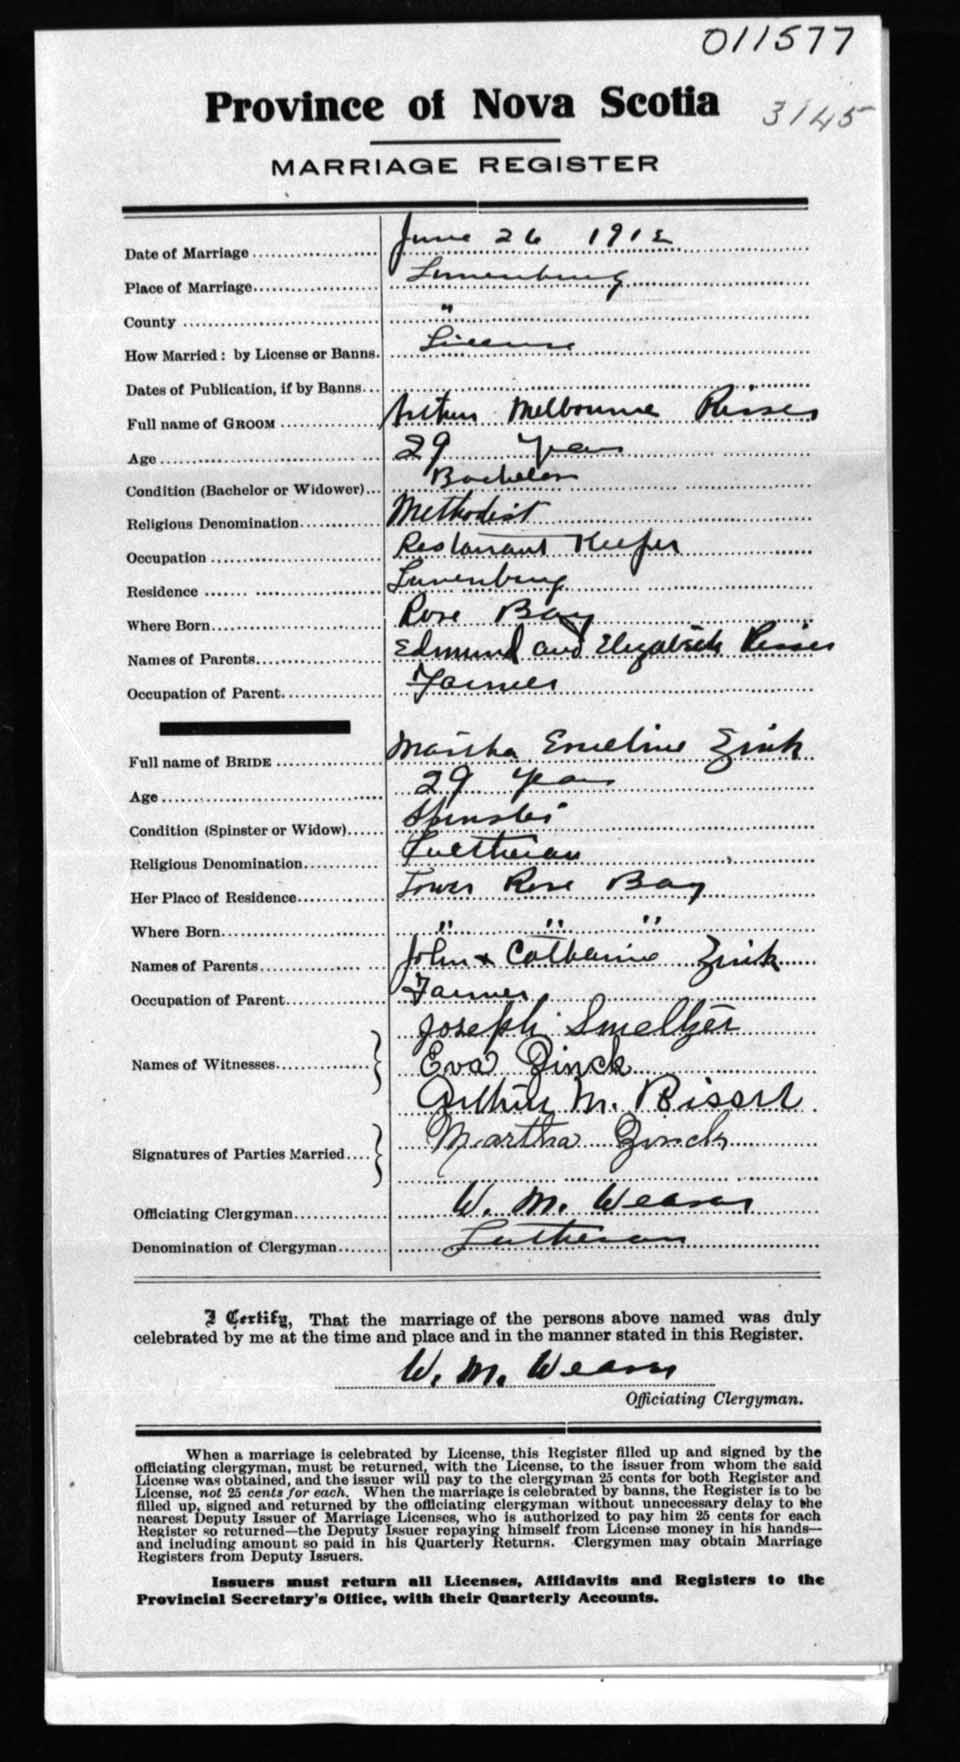 011577
Province of Nova Scotia
3145
MARRIAGE REGISTER
Date of Marriage June 26 1912
Place of Marriage Lunenburg
County "
How Married: by License or Banns. License
Dates of Publication, if by Banns
Full name of GROOM Arthur Melbourne
Age 29 Years
Condition (Bachelor or Widower) Bachelor
Religious Denomination Methodist
Occupation Restaurant Keeper
Residence Lunenburg
Where Born Rose Bay
Names of Parents Edmund and Elizabeth
Occupation of Parent Farmer
Full name of BRIDE Martha Emeline Zink
Age 29 years
Condition (Spinster or Widow) Spinster
Religious Denomination Luetheran
Her Place of Residence Lower Rose Bay
Where Born " " "
Names of Parents John & Catharine Zink
Occupation of Parent Farmer
Joseph Smeltzer
Names of Witnesses Eva Zinck
Arthur M. Risser
Martha Zinck
Signatures of Parties Married
Officiating Clergyman W. M. Weaver
Denomination of Clergyman Lutheran
I Certify, That the marriage of the persons above named was duly
celebrated by me at the time and place and in the manner stated in this Register.
W. M. Weaver
Officiating Clergyman.
When a marriage is celebrated by License, this Register filled up and signed by the
officiating clergyman, must be returned, with the License, to the issuer from whom the said
License was obtained, and the issuer will pay to the clergyman 25 cents for both Register and
License, not 25 cents for each. When the marriage is celebrated by banns, the Register is to be
filled up, signed and returned by the officiating clergyman without unnecessary delay to the
nearest Deputy Issuer of Marriage Licenses, who is authorized to pay him 25 cents for each
Register so returned—the Deputy Issuer repaying himself from License money in his hands—
and including amount so paid in his Quarterly Returns. Clergymen may obtain Marriage
Registers from Deputy Issuers.
Issuers must return all Licenses, Affidavits and Registers to the
Provincial Secretary's Office, with their Quarterly Accounts.